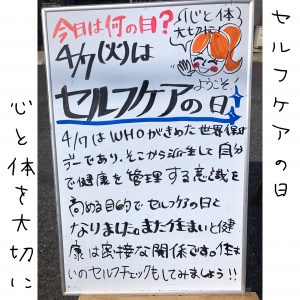 セルフケアの日
今日は何の日?
心と体
大切に!
4/7(火)は
ようこそ
セルフケアの日
4/7はWHOがきめた世界保健
デーであり、そこから派生して自分
で健康を管理する意識を
高める目的でセルフケアの日と
なりました。また住まいと健
康は密接な関係です。住ま
いのセルフチェックもしてみましょう!!
心と体を大切に